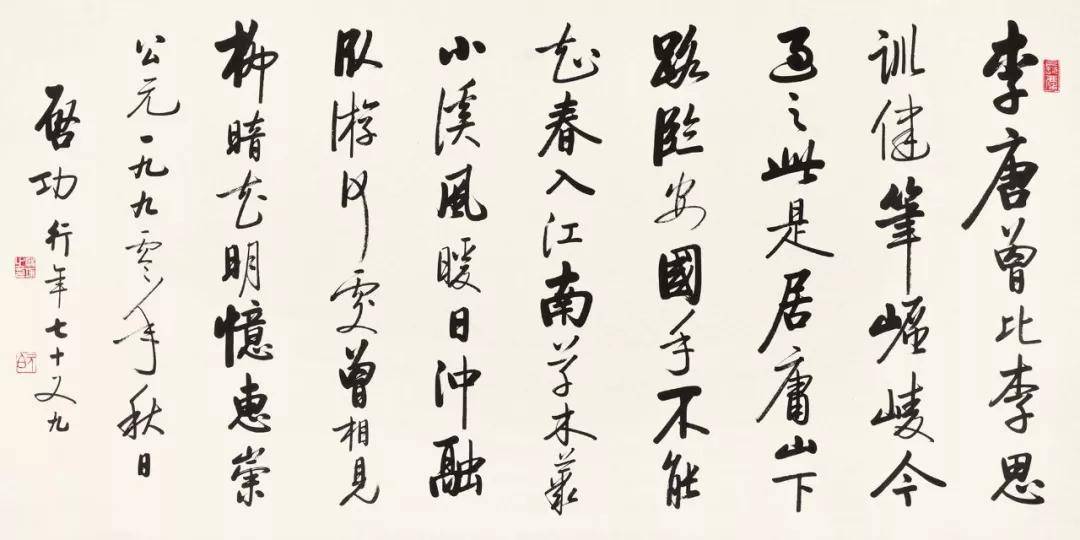 李唐曾比李思
訓健筆崛崚今
過之此是居庸山下
路臨安國手不能
知春入江南草木叢
小溪風暖日沖融
臥游何處曾相見
柳暗花明憶惠崇
公元一九九零年秋日
啓功行年七十又九